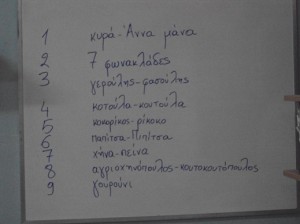 1 κυρά-Άννα μάνα
2 7 φωνακλάδες
3 γερούλης-φασούλης
4 κοτούλα-κουτούλα
5 κοκορίκος-ρίκοκο
6 παπίτσα-Πιπίτσα
7 χήνα-πείνα
8 αγριοχηνόπουλος-κουτοκουτόπουλος
9 γουρούνι